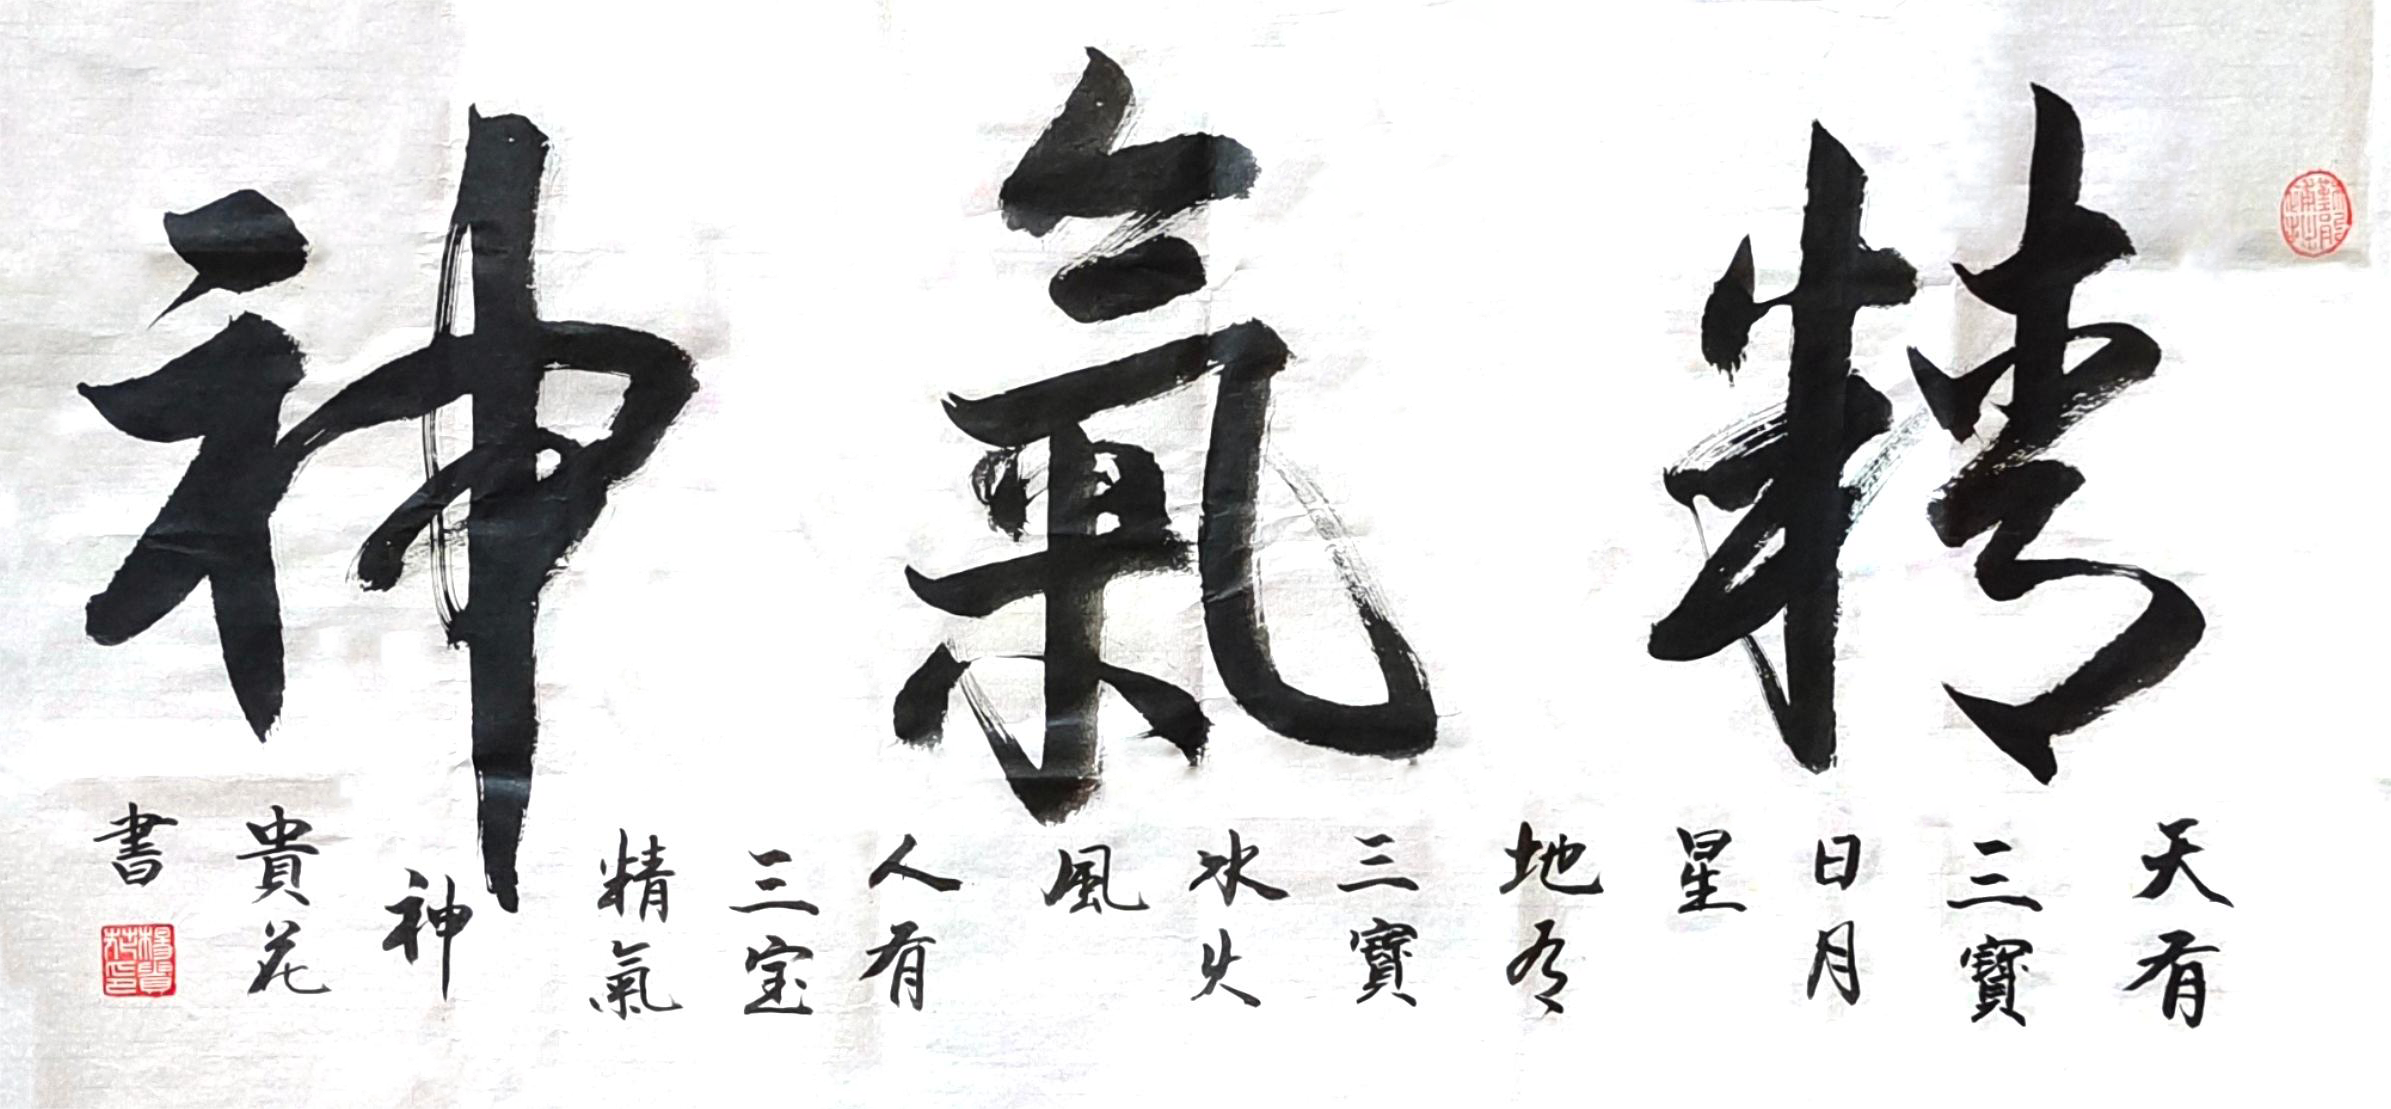 精氣神
天有
三寶
日月
星
地有
三寶
水火
風
人有
三宝
精氣
神
貴花
書
楊貴花印